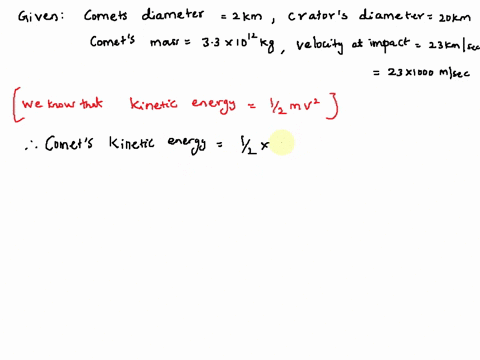 Given: Comets diameter = 2km, Crator's diameter = 20km
Comet's mass = 3.3 × 10¹² kg, velocity at impact = 23 km/sec
= 23 × 1000 m/sec
[We know that kinetic energy = 1/2 mv²]
∴ Comet's kinetic energy = 1/2 ×